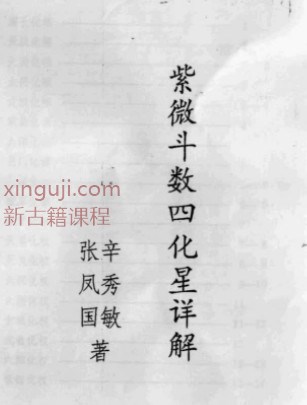 紫微斗数四化星详解
辛秀敏
张凤国
著
xinguji.com
新古籍课程